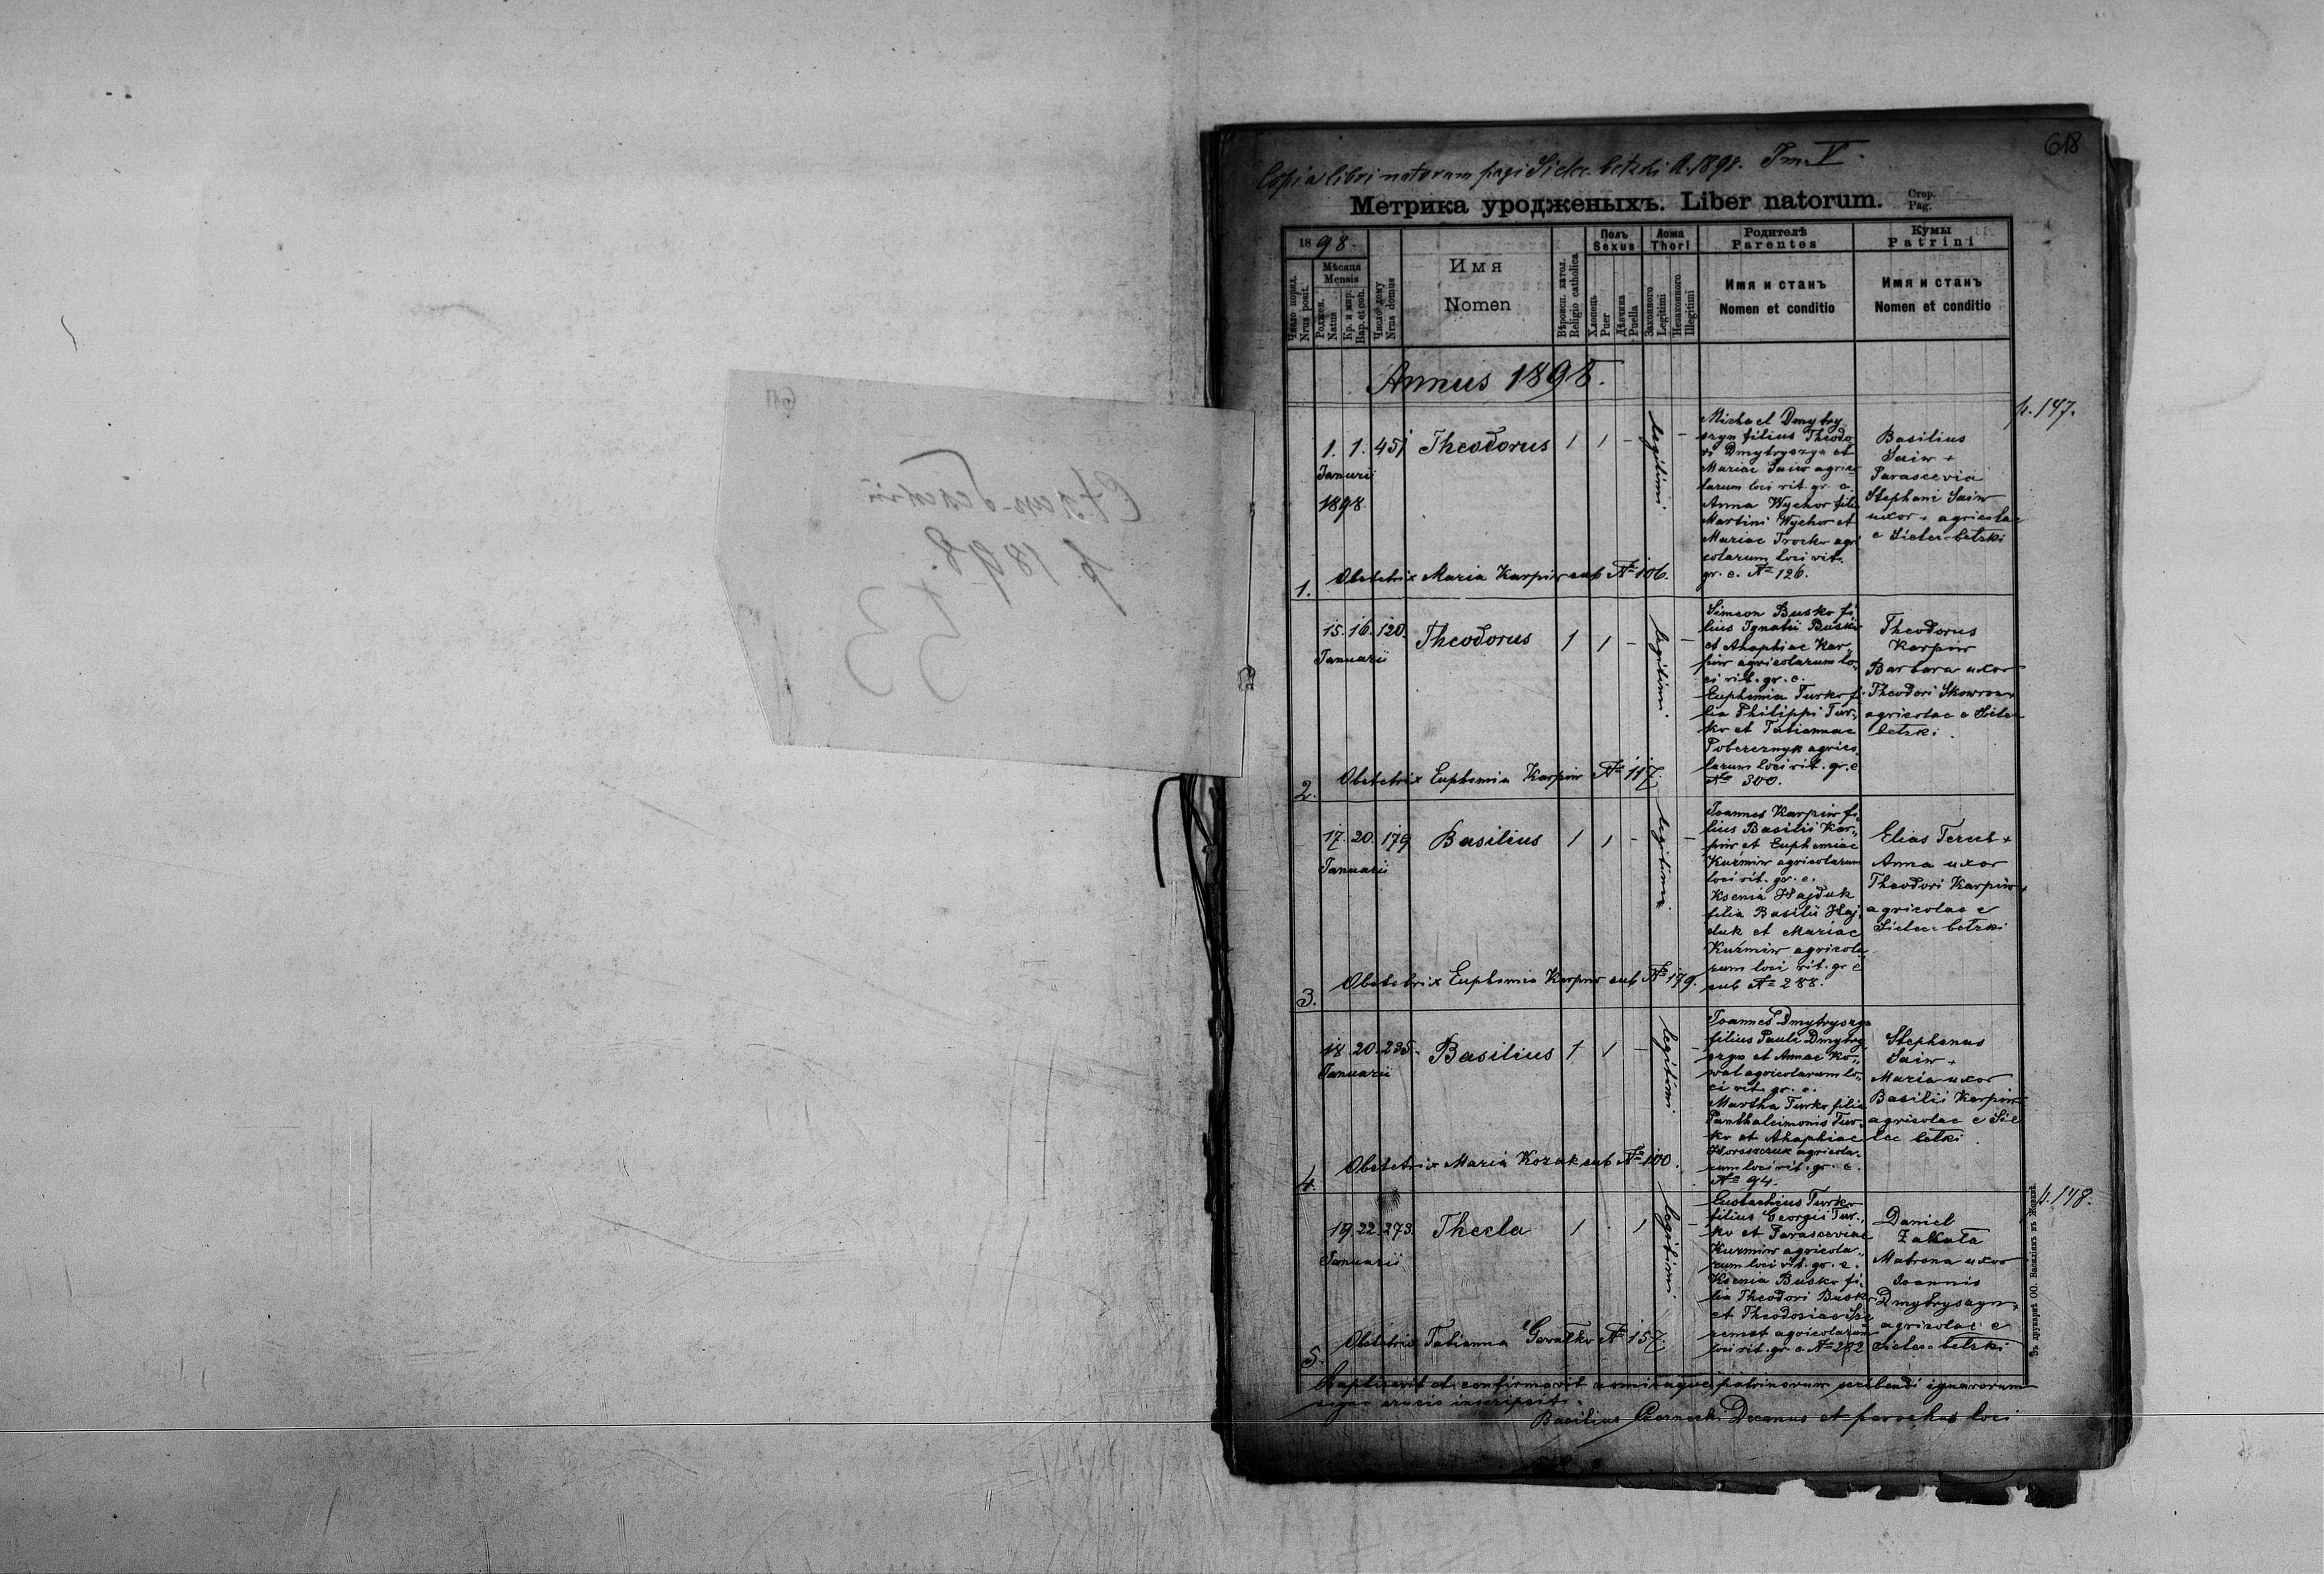 618
Copia libri natorum pagi Sielec betzki A. 1898. Tm. V.
Метрика уродженыхъ. Liber natorum.
Стор.
Pag.
1898.
Число поряд.
Nrus posit.
Мѣсяця
Mensis
Рожден.
Natus
Кр. и мир.
Bap. et con.
Число дому
Nrus domus
Имя
Nomen
Вѣроисп. катол.
Religio catholica
Полъ
Sexus
Хлопець
Puer
Дѣвчина
Puella
Ложа
Thori
Законного
Legitimi
Незаконного
Illegitimi
Родителѣ
Parentes
Имя и станъ
Nomen et conditio
Кумы
Patrini
Имя и станъ
Nomen et conditio
Annus 1898.
p. 147.
1. 1. 451 Theodorus 1 1 - legitimi -
Januarii
1898
Michael Dmytry
szyn filius Theodo
ri Dmytryszyn et
Mariae Saiw agrico
larum loci rit. gr. c.
Anna Wychor filia
Martini Wychor et
Mariae Trocko agri
colarum loci rit.
gr. c. № 126.
Basilius
Saiw +
Parascevia
Stephani Saiw
uxor + agricolae
e Sielec betzki
1. Obstetrix Maria Karpiw sub № 106.
15. 16. 120. Theodorus 1 1 - legitimi -
Januarii
Simeon Busko fi
lius Ignatii Busko
et Ahaphiae Kar„
piw agricolarum lo„
ci rit. gr. c.
Euphemia Turko fi
lia Philippi Tur„
ko et Tatiannae
Pobereznyk agrico
larum loci rit. gr. c
№ 300.
Theodorus
Karpiw
Barbara uxor
Theodori Skowron
agricolae e Sielec
betzki.
2. Obstetrix Euphemia Karpiw № 117.
17. 20. 179 Basilius 1 1 - legitimi -
Januarii
Joannes Karpiw fi
lius Basilii Kar„
piw et Euphemiae
Kuźmiw agricolarum
loci rit. gr. c.
Ksenia Hajduk
filia Basilii Haj
duk et Mariae
Kuźmiw agricola
rum loci rit. gr c
sub № 288.
Elias Terech +
Anna uxor
Theodori Karpiw +
agricolae e
Sielec betzki
3. Obstetrix Euphemia Karpiw sub № 179.
18. 20. 235. Basilius 1 1 - legitimi -
Januarii
Joannes Dmytryszyn
filius Pauli Dmytry
szyn et Annae Ko„
wal agricolarum lo„
ci rit. gr. c.
Martha Turko filia
Panthaleimonis Tur„
ko et Ahaphiae
agricola„
rum loci rit. gr. c.
№ 94.
Stephanus
Saiw +
Maria uxor
Basilii Karpiw
agricolae e Sie
lec betzki.
4. Obstetrix Maria Kozak sub № 100.
p. 148.
19. 22. 273. Thecla 1 · 1 legitimi -
Januarii
Eustachius Turko
filius Georgii Tur„
ko et Parasceviae
Kuzmiw agricola„
rum loci rit. gr. c.
Ksenia Busko fi„
lia Theodori Busko
et Theodosiae Sze
remet agricolarum
loci rit. gr. c. № 282
Daniel
Zakala
Matrona uxor
Joannis
Dmytryszyn +
agricolae e
Sielec betzki
5. Obstetrix Tatianna Gowalko № 157.
Baptisavit et confirmavit nominaque patrinorum scribendi ignarorum
signo crucis inscripsit.
Basilius Czernecki Decanus et parochus loci
Зъ друкарнѣ ОО. Василіянъ въ Жовквѣ.
р. 1898.
53